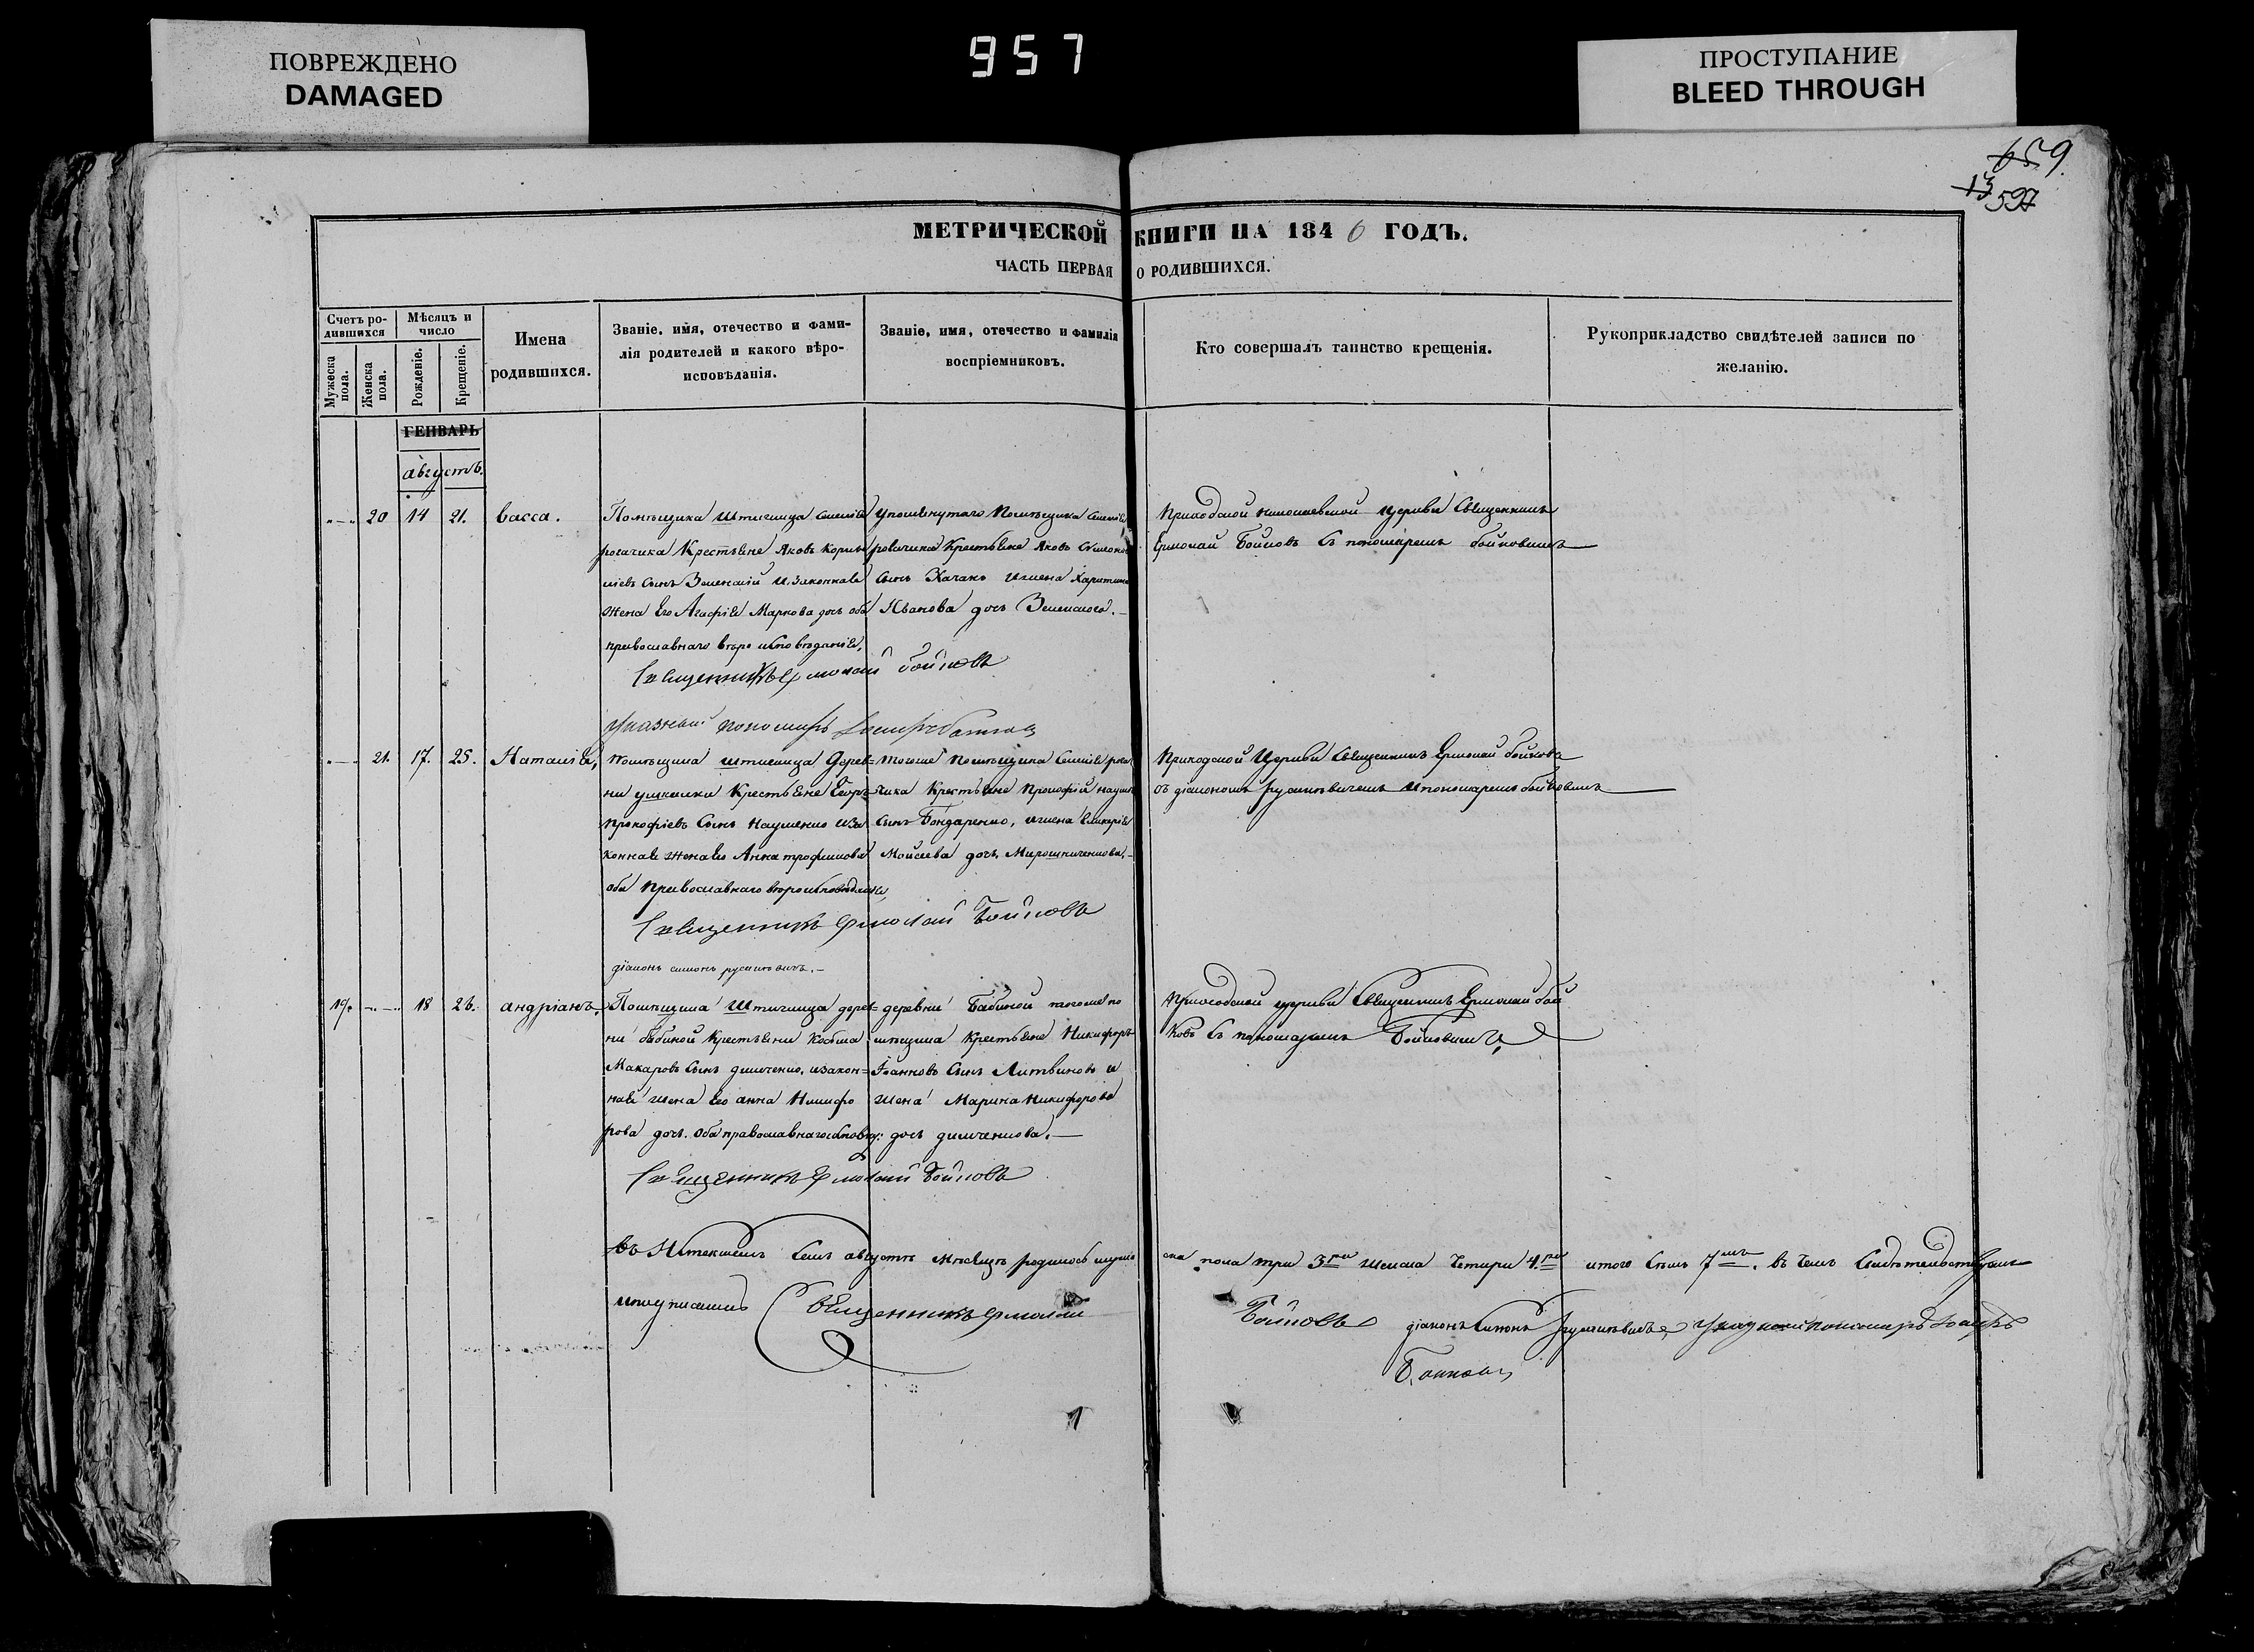 ПОВРЕЖДЕНО
DAMAGED
957
ПРОСТУПАНИЕ
BLEED THROUGH
659.
13
597
МЕТРИЧЕСКОЙ КНИГИ НА 1846 ГОДЪ.
ЧАСТЬ ПЕРВАЯ О РОДИВШИХСЯ.
Счетъ ро-
дившихся
Мужеска пола.
Женска пола.
Мѣсяцъ и
число
Рожденіе.
Крещеніе.
Имена
родившихся.
Званіе, имя, отечество и фами-
лія родителей и какого вѣро-
исповѣданія.
Званіе, имя, отечество и фамилія
воспріемниковъ.
Кто совершалъ таинство крещенія.
Рукоприкладство свидѣтелей записи по
желанію.
ГЕНВАРЬ
августъ.
20 14 21. васса.
Помѣщика Штиглица
Крестьяне Яковъ
сынъ Зеленскій и законная
жена его Агафія Маркова дочь оба
православнаго вѣро исповѣданія,
упомянутаго Помѣщика
Крестьяне Яковъ
сынъ Качанъ
Иванова дочь Зеленскаго.
Приходской николаевской церкви Священникъ
Ермолай Бойковъ съ пономаремъ бойковымъ
Священникъ Ермолай Бойковъ
Указный пономарь
21. 17. 25. Наталія,
Помѣщика Штиглица дерев=
ни Крестьяне Егоръ
Прокофіевъ сынъ Науменко иза
конная жена его Анна трофимова
оба Православнаго вѣроисповѣданія,
тогоже помѣщика
Крестьяне Прокофій наумовъ
сынъ Бондаренко,
Моисеева дочь Мирошниченкова.
Приходской Церкви Священникъ Ермолай бойковъ
съ діакономъ и пономаремъ бойковымъ
Священникъ Ермолай Бойковъ
діаконъ симонъ
19. 18 26. андріанъ.
Помѣщика Штиглица дерев=
ни бабиной Крестьяни Косьма
Макаровъ сынъ демченко, изакон=
ная жена его анна Никифо
рова дочь. оба православнаго
деревни Бабиной тогоже по
мѣщика Крестьяне Никифоръ
Іоанновъ сынъ Литвиновъ и
жена Марина Никифорова
дочь демченкова.
Приходской церкви Священникъ Ермолай бой
ковъ съ пономаремъ Бойковымъ,
Священникъ Ермолай Бойковъ
въ Истекшемъ семъ августѣ мѣсяцѣ родилось муже ска пола три 3 ри женска Четири 4. ри итого семь 7 мь. въ чемъ Свидѣтельствуемъ
иподписомъ Священникъ Ермолай Бойковъ діаконъ Симонъ пономарь